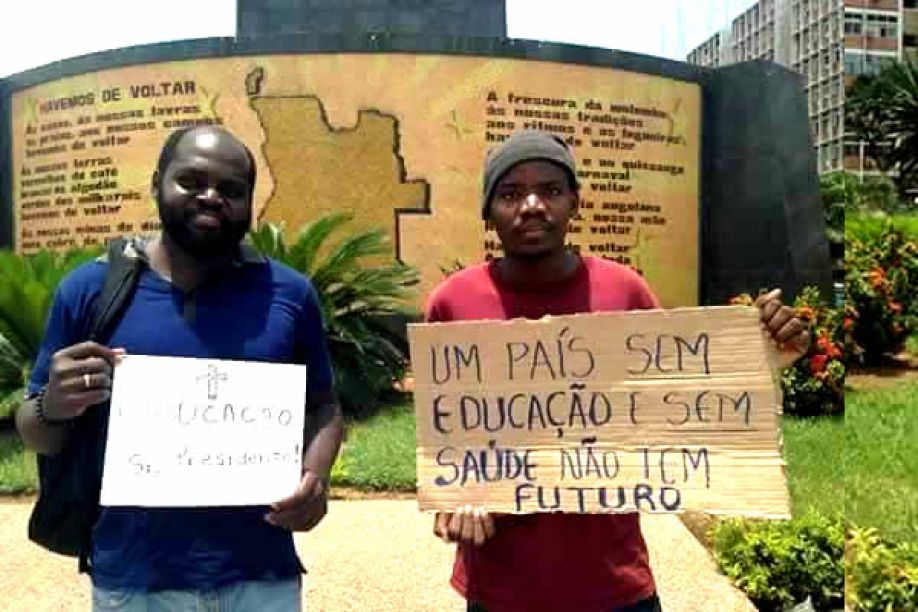 HAVEMOS DE VOLTAR
Às casas, às nossas lavras
às praias, aos nossos campos
havemos de voltar
Às nossas terras
vermelhas do café
brancas do algodão
verdes dos milharais
havemos de voltar
Às nossas minas de
A frescura da mulemba
às nossas tradições
aos ritmos e às fogueiras
de voltar
e ao quissange
carnaval
voltar
angolana
nossa mãe
voltar
UCAÇÃO
Sr. Presidente!
UM PAÍS SEM
EDUCAÇÃO E SEM
SAÚDE NÃO TEM
FUTURO